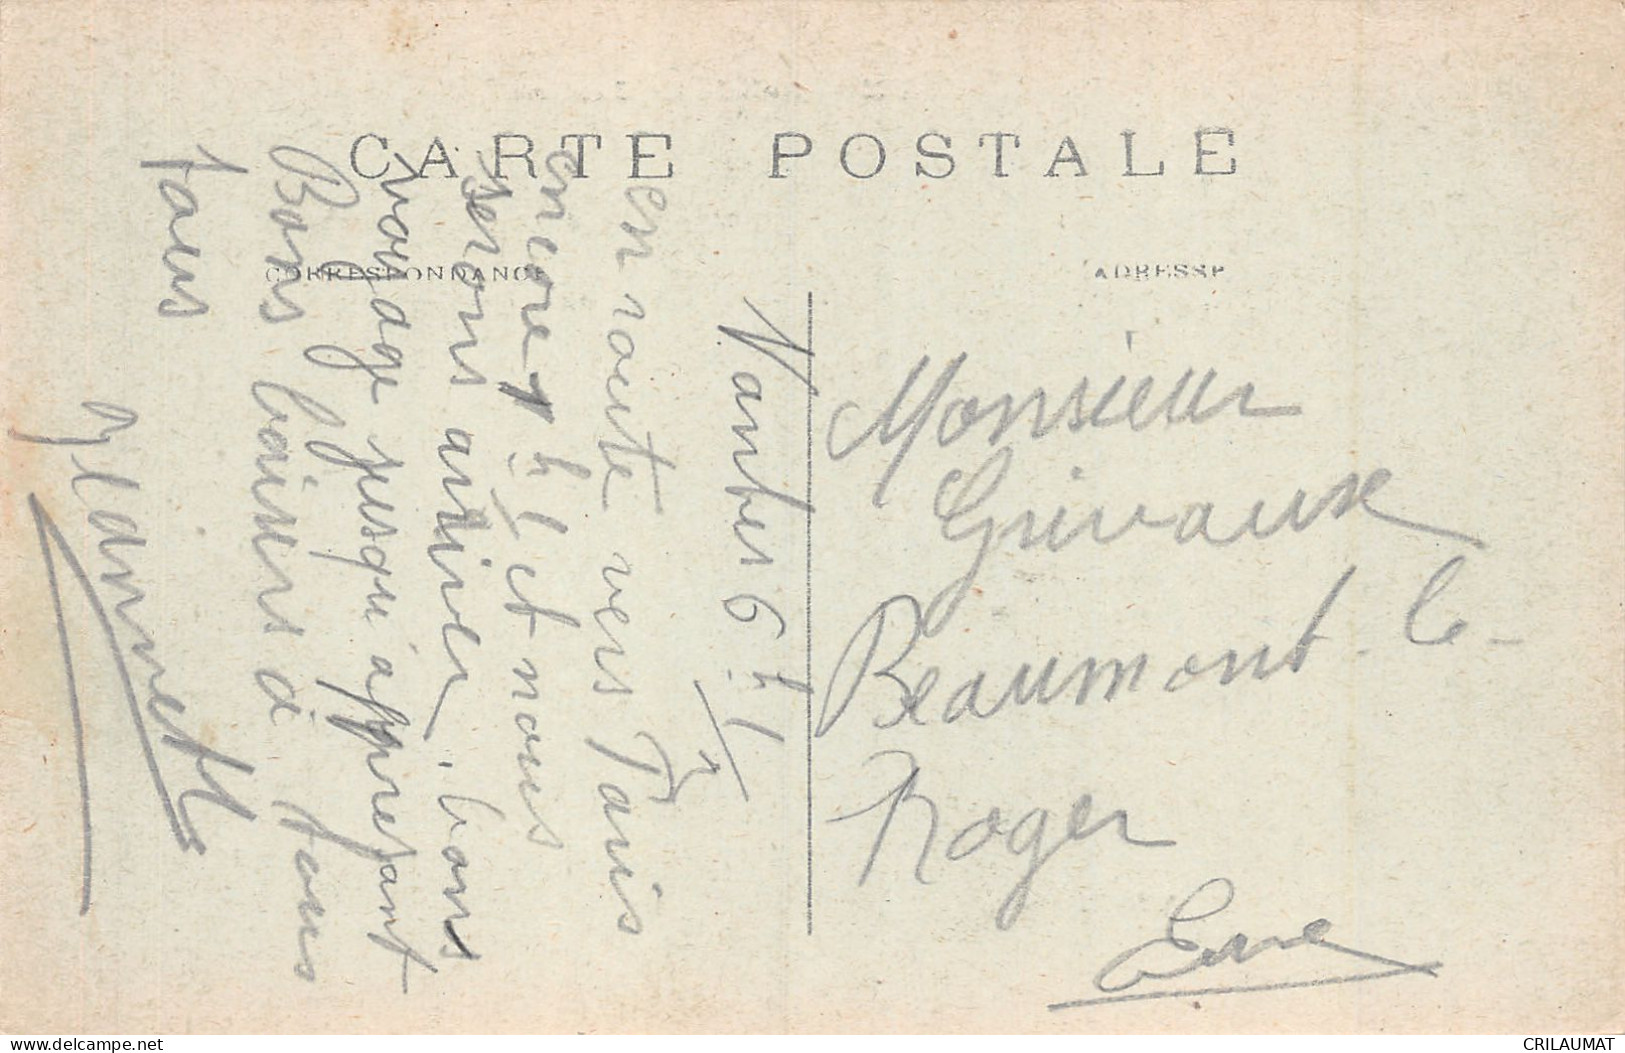 CARTE POSTALE
CORRESPONDANCE
ADRESSE
Nantes 6 h
en route vers Paris
encore 1 h et nous
serons arriver. bons
voyage jusqu'a present
Bons baisers à tous
Tous
Monsieur
Grivaux
Beaumont-le-
Roger
Eure
delcampe.net
CRILAUMAT